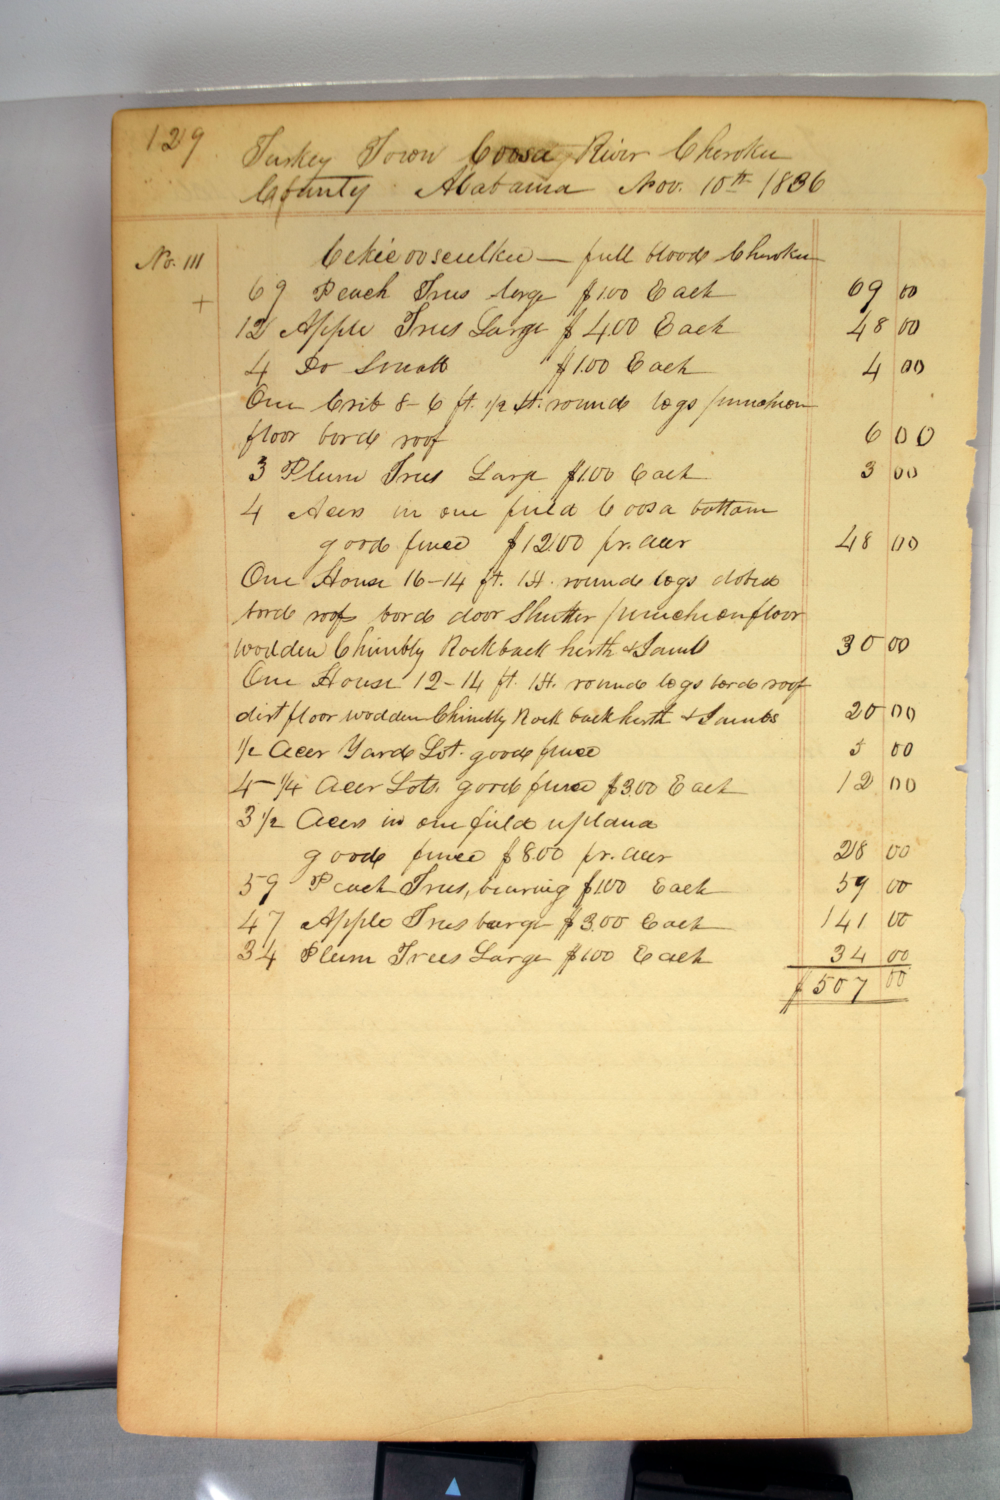 129
Turkey Town Coosa River Cherokee
County Alabama Nov. 10th 1836
No. 111 full blood Cherokee
+ 69 Peach Trees large $1.00 Each 69 00
12 Apple Trees Large $4.00 Each 48 00
4 Do Small $1.00 Each 4 00
One Crib 8-6 ft. 1/2 St. round logs punchion
floor bord roof 6 00
3 Plum Trees Large $1.00 Each 3 00
4 Acers in one field Coosa bottom
good fence $12.00 pr. acer 48 00
One House 16-14 ft. 1 St. round logs dobed
bord roof bord door Shutter punchion floor
wodden Chimbly Rock back herth & Jambs 30 00
One House 12-14 ft. 1 St. round logs bord roof
dirt floor wodden Chimbly Rock back herth & Jambs 20 00
1/2 Acer Yard Lot. good fence 5 00
4-1/4 Acer Lots. good fence $3.00 Each 12 00
3 1/2 Acers in one field upland
good fence $8.00 pr. acer 28 00
59 Peach Trees, bearing $1.00 Each 59 00
47 Apple Trees large $3.00 Each 141 00
34 Plum Trees Large $1.00 Each 34 00
$507 00